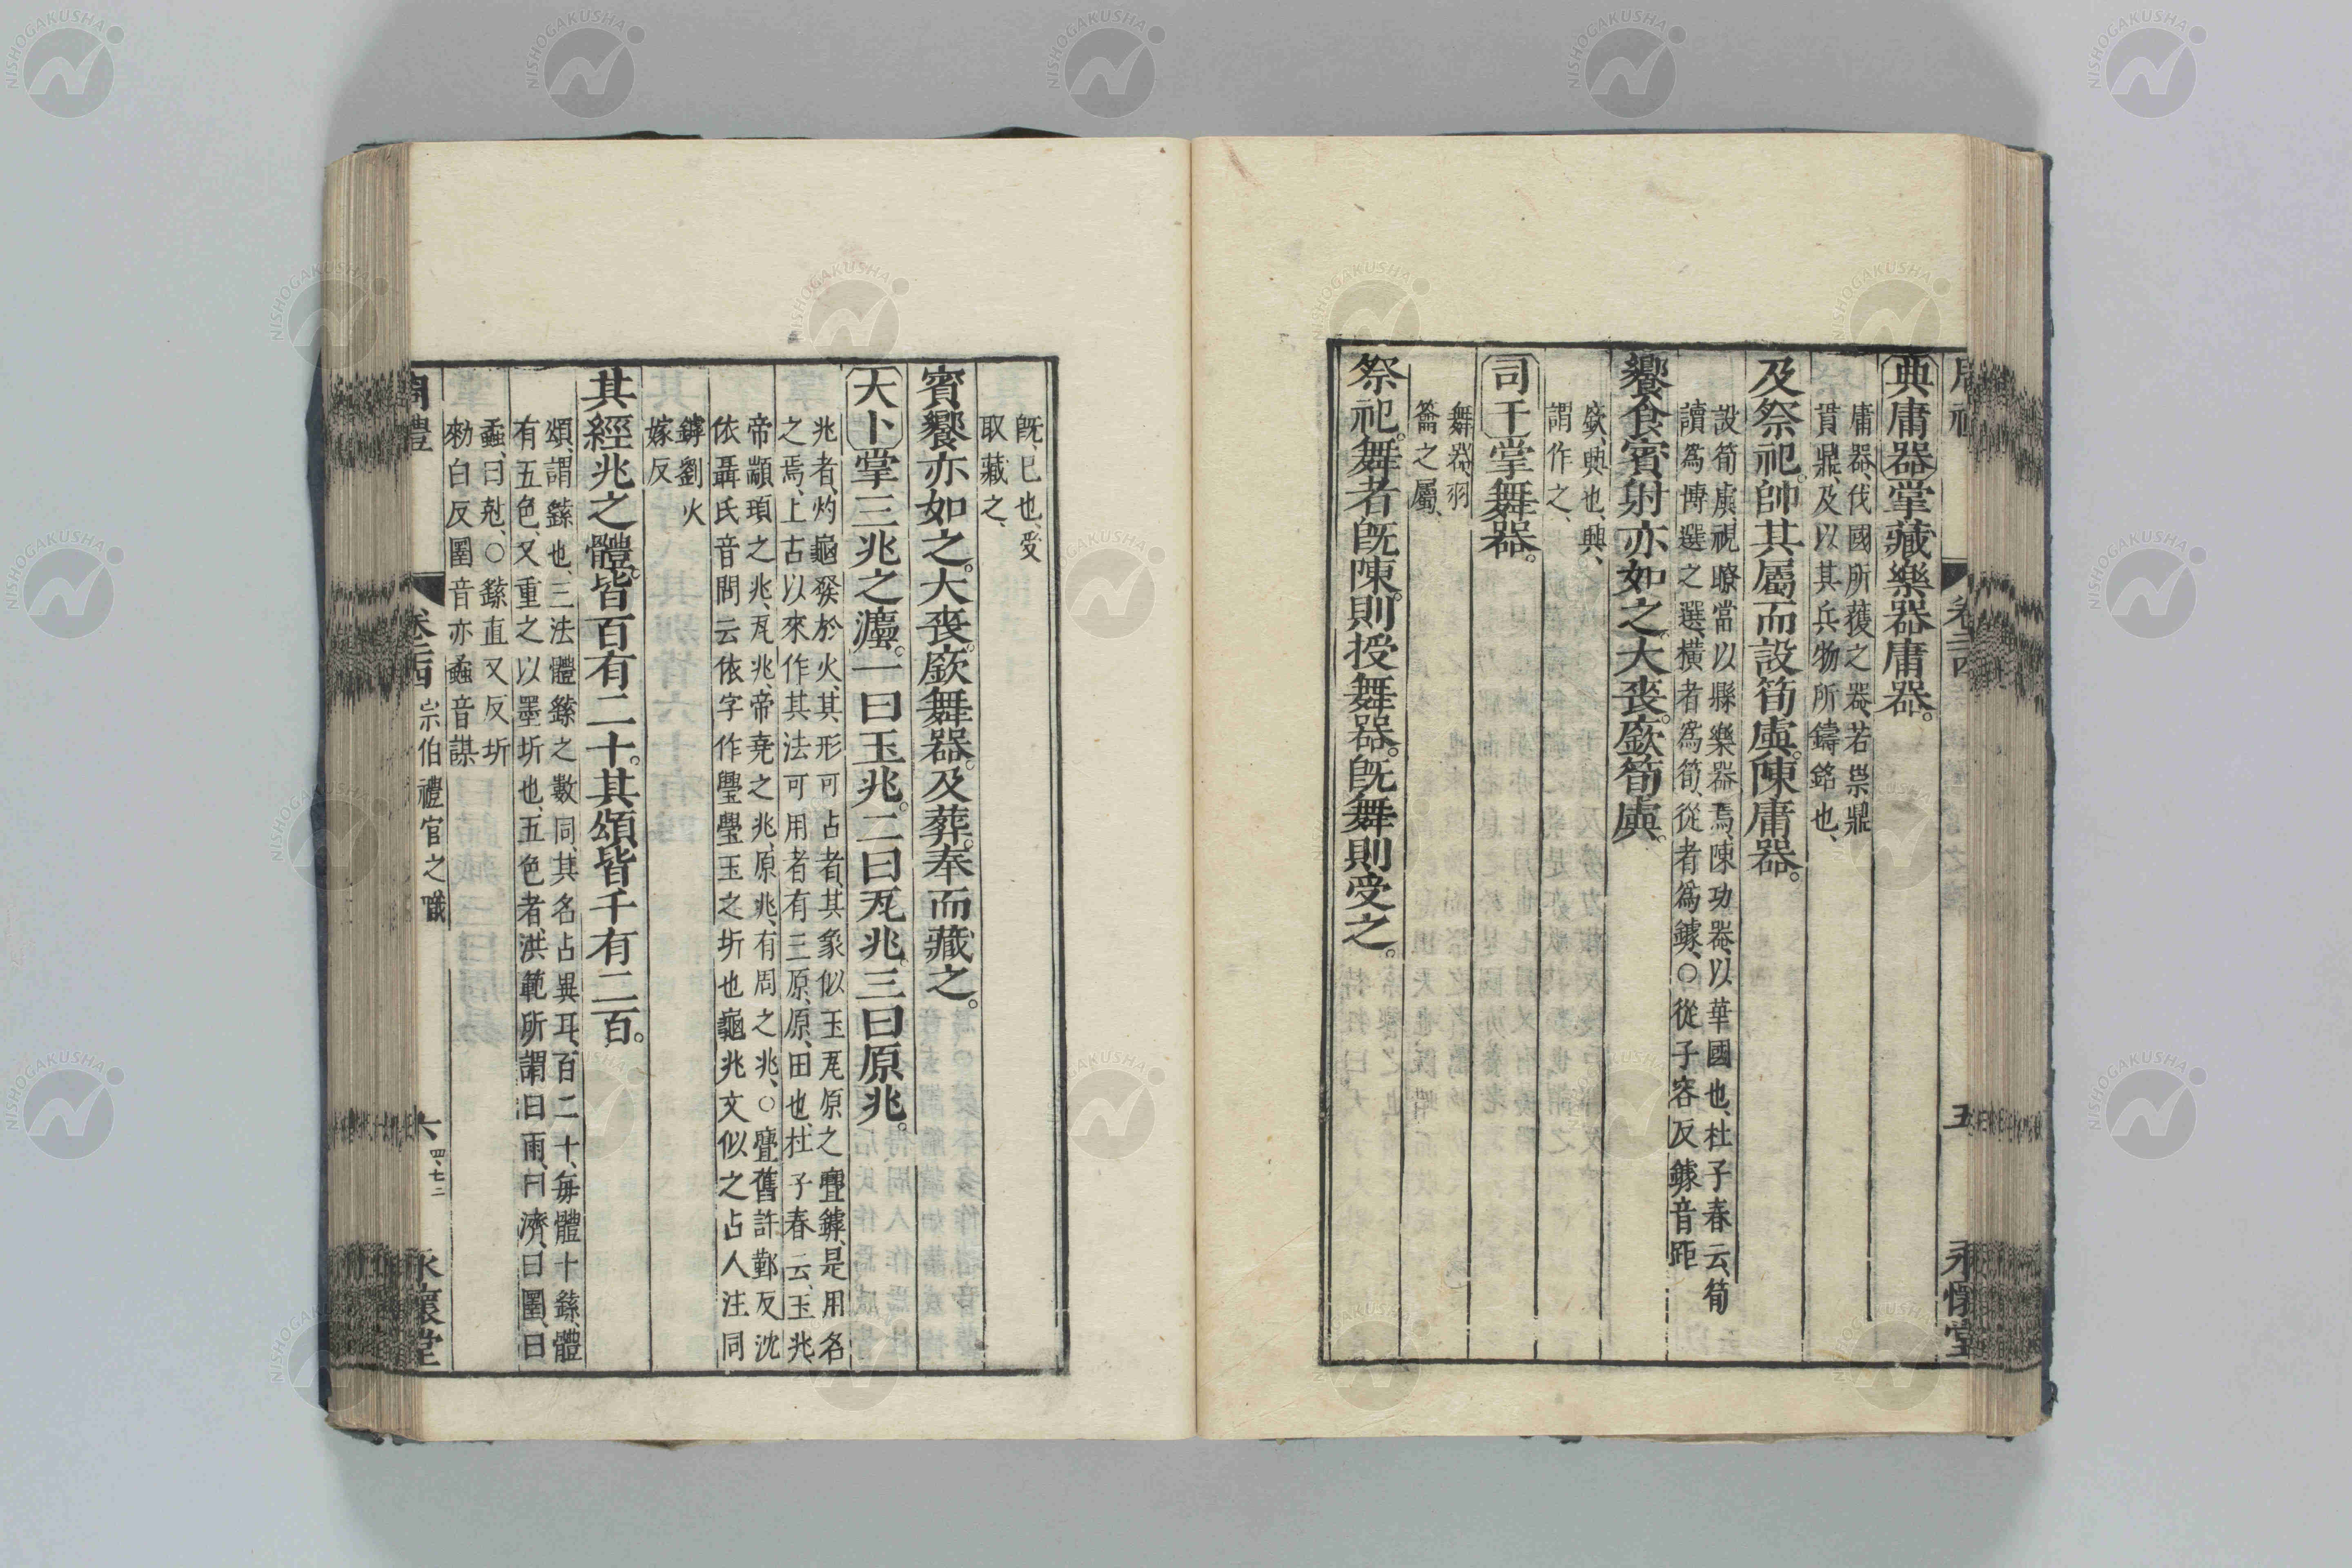 典庸器掌藏樂器庸器。
庸器、伐國所獲之器、若崇鼎
貫鼎、及以其兵物所鑄銘也、
及祭祀。帥其屬而設筍虡。陳庸器。
設筍虡視瞭當以縣樂器焉、陳功器、以華國也、杜子春云、筍
讀爲博選之選、橫者爲筍、從者爲鐻、○從子容反鐻音距
饗食賓射亦如之。大喪。廞筍虡。
廞、興也、興、
謂作之、
司干掌舞器。
舞器、羽
籥之屬、
祭祀。舞者旣陳。則授舞器。旣舞則受之。
五
旣、已也、受
取藏之、
賓饗亦如之。大喪。廞舞器。及葬。奉而藏之。
大卜掌三兆之灋。一曰玉兆。二曰瓦兆。三曰原兆。
兆者、灼龜發於火、其形可占者、其象似玉瓦原之璺罅、是用名
之焉、上古以來作其法可用者有三原、原、田也、杜子春云、玉兆、
帝顓頊之兆、瓦兆、帝堯之兆、原兆、有周之兆、○璺舊許鄞反沈
依聶氏音問云依字作璺璺玉之坼也龜兆文似之占人注同
罅劉火
嫁反
其經兆之體。皆百有二十。其頌皆千有二百。
頌、謂繇也、三法體繇之數同、其名占異耳、百二十、每體十繇、體
有五色、又重之以墨坼也、五色者、洪範所謂曰雨、曰濟、曰圛、曰
蟊、曰尅、○繇直又反坼
勑白反圛音亦蟊音謀
周禮 卷二十四 宗伯禮官之職 六 四、七二 永懷堂